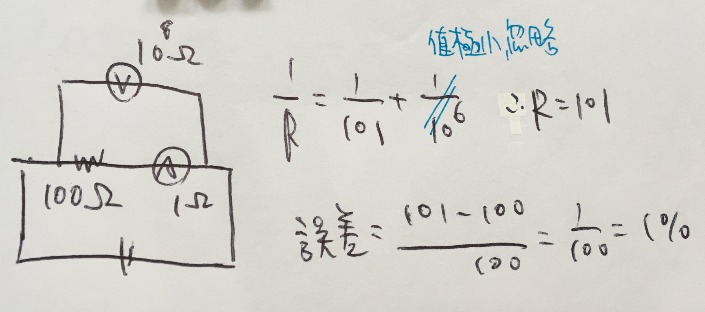 10.Ω
V
100Ω
A
1Ω
值極小忽略
1/R = 1/101 + 1/10⁶ ∴R=101
誤差= (101-100)/100 = 1/100 = 1%